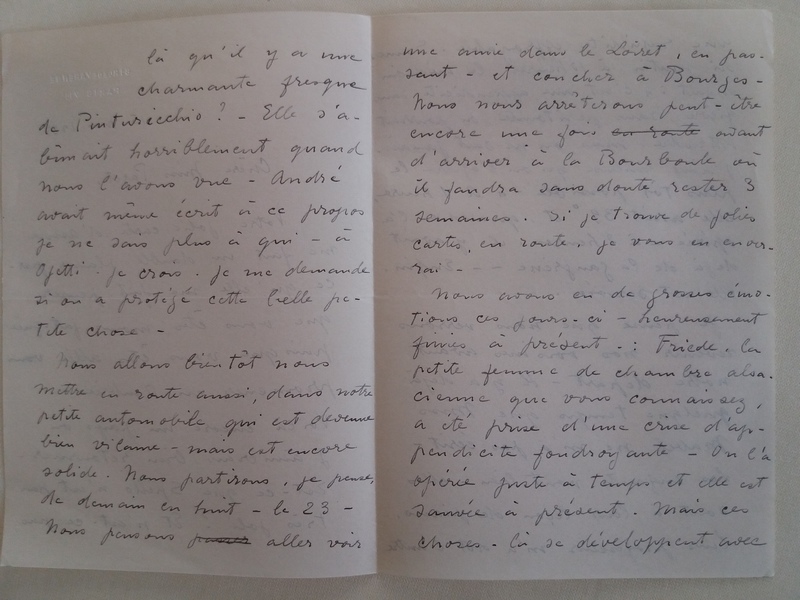 là qu'il y a une
charmante fresque
de Pinturicchio ? - Elle s'a-
bîmait horriblement quand
nous l'avons vue - André
avait même écrit à ce propos
je ne sais plus à qui - à
Ojetti. je crois. Je me demande
si on a protégé cette belle pe-
tite chose -
Nous allons bientôt nous
mettre en route aussi, dans notre
petite automobile qui est devenue
bien vilaine - mais est encore
solide. Nous partirons, je pense,
de demain en huit - le 23 -
Nous pensons passer aller voir
une amie dans le Loiret, en pas-
sant - et coucher à Bourges -
Nous nous arrêterons peut-être
encore une fois en route avant
d'arriver à la Bourboule où
il faudra sans doute rester 3
semaines. Si je trouve de jolies
cartes, en route, je vous en enver-
rai -
Nous avons eu de grosses émo-
tions ces jours-ci - heureusement
finies à présent - : Friede, la
petite femme de chambre alsa-
cienne que vous connaissez,
a été prise d'une crise d'ap-
pendicite foudroyante - On l'a
opérée juste à temps et elle est
sauvée à présent. Mais ces
choses-là se développent avec